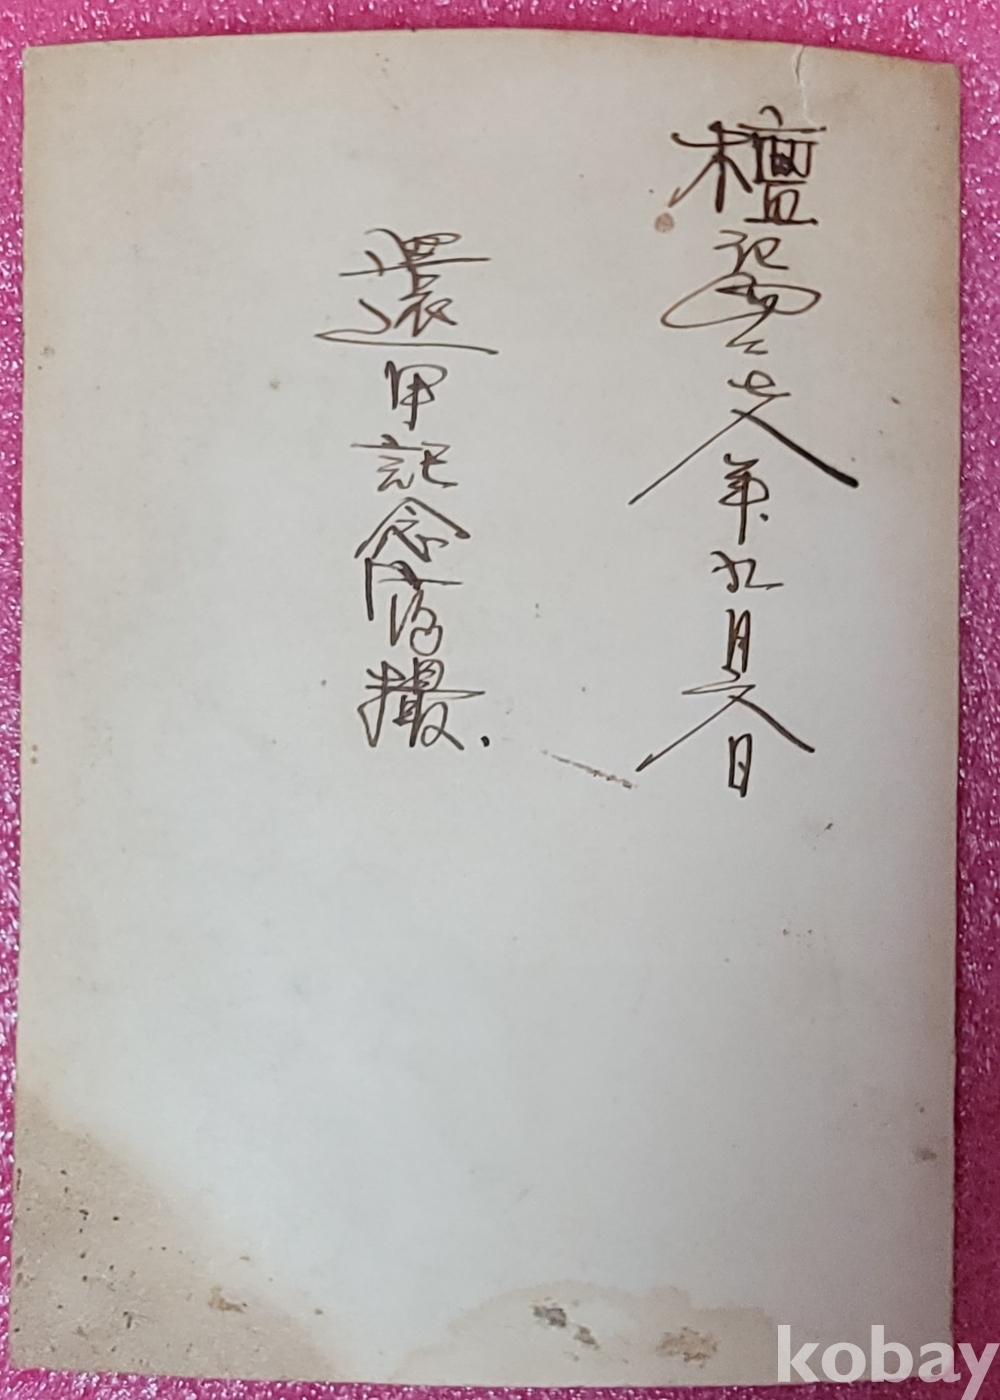 檀紀四二年九月日
還甲記念撮.
kobay